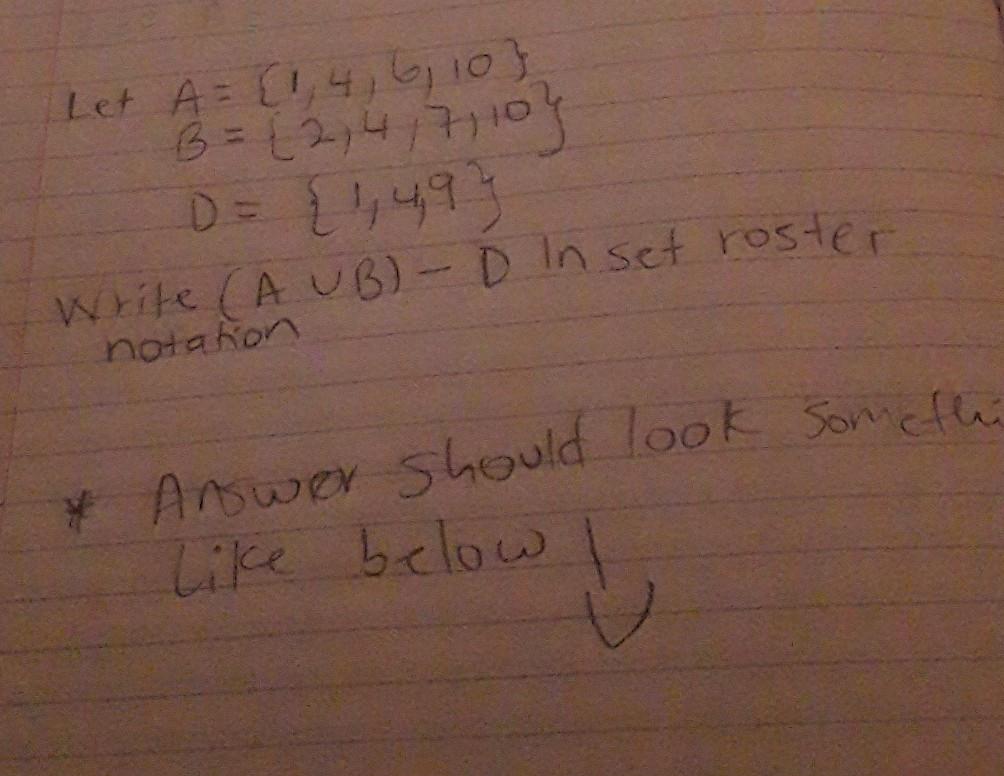 Let A = {1, 4, 6, 10}
B = {2, 4, 7, 10}
D = {1, 4, 9}
Write (A ∪ B) - D In set roster
notation
* Answer should look somethi
Like below ↓